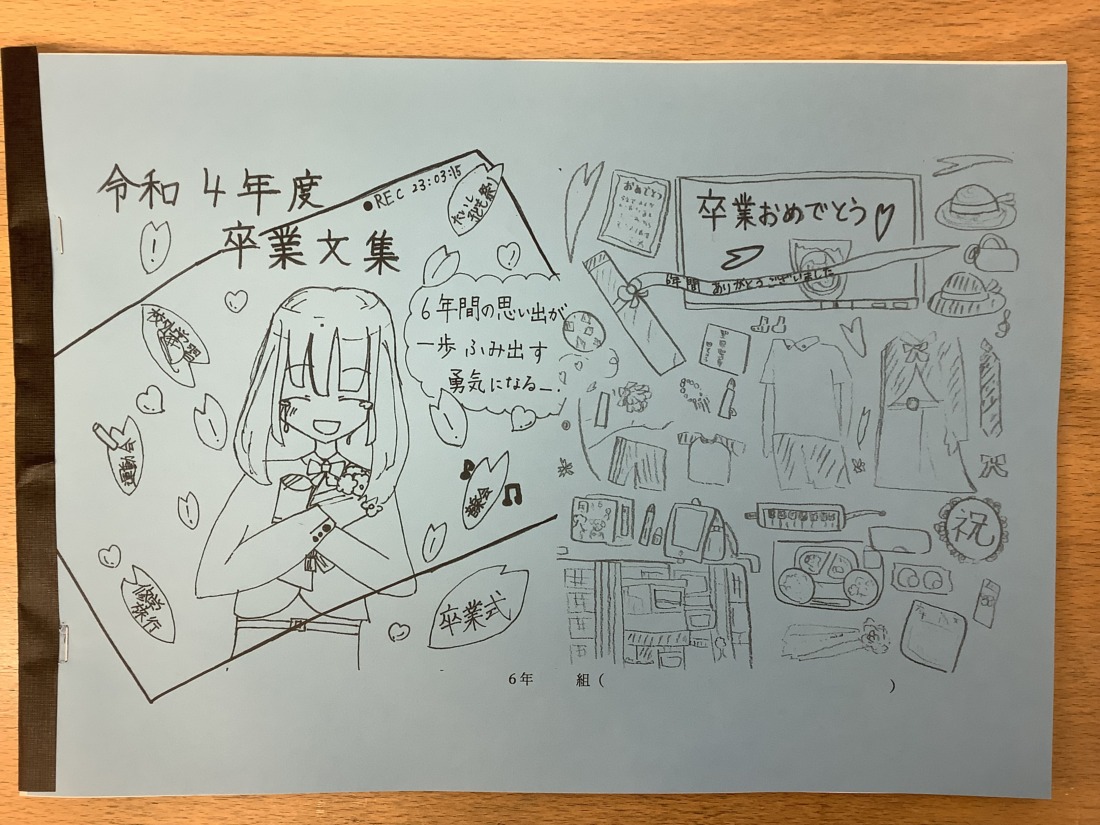 令和4年度
卒業文集
●REC 23:03:15
6年間の思い出が
一歩ふみ出す
勇気になる—.
運動会
音楽会
修学
旅行
卒業式
おめでとう
卒業おめでとう
6年間 ありがとうございました
祝
6年 組( )